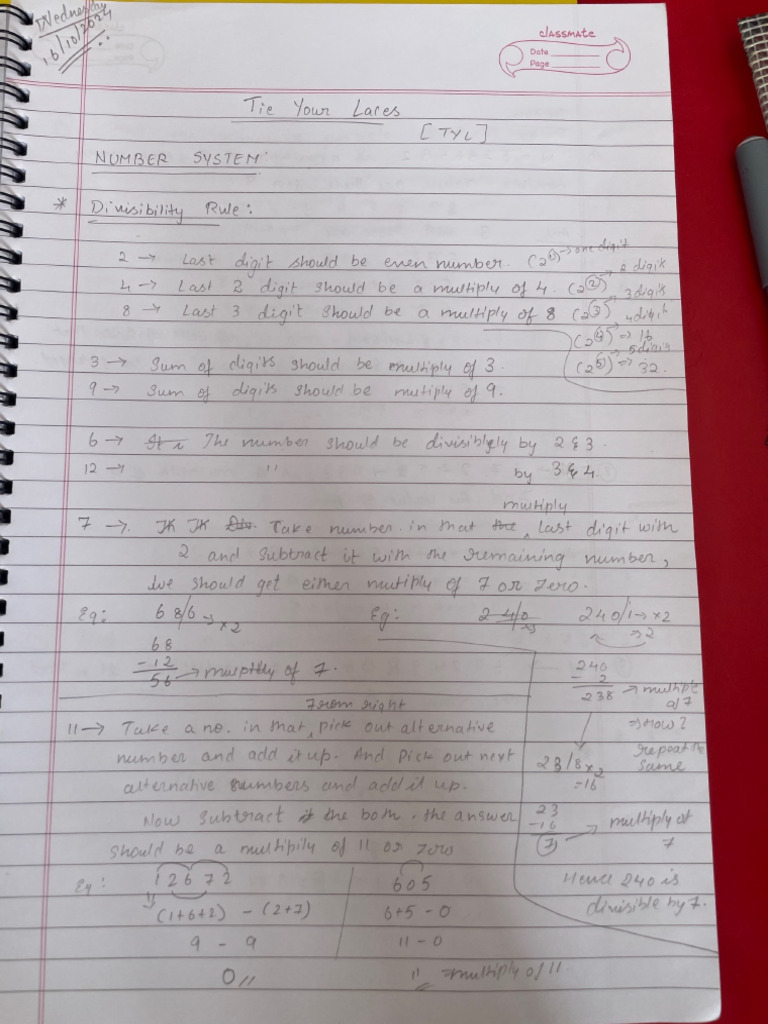 Wednesday
16/10/2024
classmate
Date
Page
Tie Your Laces
[TYL]
NUMBER SYSTEM:
* Divisibility Rule:
2 → Last digit should be even number. (2^1) → one digit
4 → Last 2 digit should be a multiply of 4. (2^2) → 2 digits
8 → Last 3 digit should be a multiply of 8 (2^3) → 3 digits
(2^4) → 4 digit ⇒ 16
(2^5) → 5 digit ⇒ 32.
3 → Sum of digits should be multiply of 3.
9 → Sum of digits should be multiply of 9.
6 → The number should be divisiblely by 2 & 3.
12 → " by 3 & 4.
7 → Take number in that, multiply last digit with
2 and subtract it with the remaining number,
we should get either multiply of 7 or zero.
Eg: 68/6 → ×2
68
-12
56 → multiply of 7.
Eg: 24/0 240/1 → ×2
⇒ 2
240
- 2
238 → multiple of 7
⇒ How?
repeat the same
23/8 ×2
=16
23
-16
7 → multiply of 7
Hence 240 is
divisible by 7.
11 → Take a no. in that, from right pick out alternative
number and add it up. And pick out next
alternative numbers and add it up.
Now subtract the both. the answer
should be a multipily of 11 or zero
Eg: 12672
(1+6+2) - (2+7)
9 - 9
0 //
605
6+5 - 0
11 - 0
11 ⇒ multiply of 11.